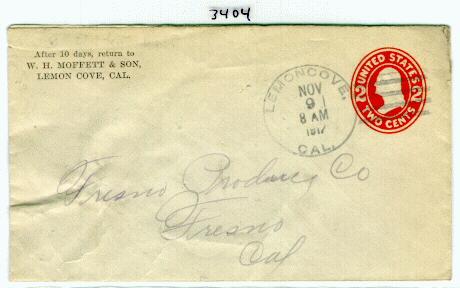 3404
After 10 days, return to
W. H. MOFFETT & SON,
LEMON COVE, CAL.
LEMONCOVE,
NOV
9
8 AM
1917
CAL.
UNITED STATES
2 2
TWO CENTS
Fresno Produce Co
Fresno
Cal